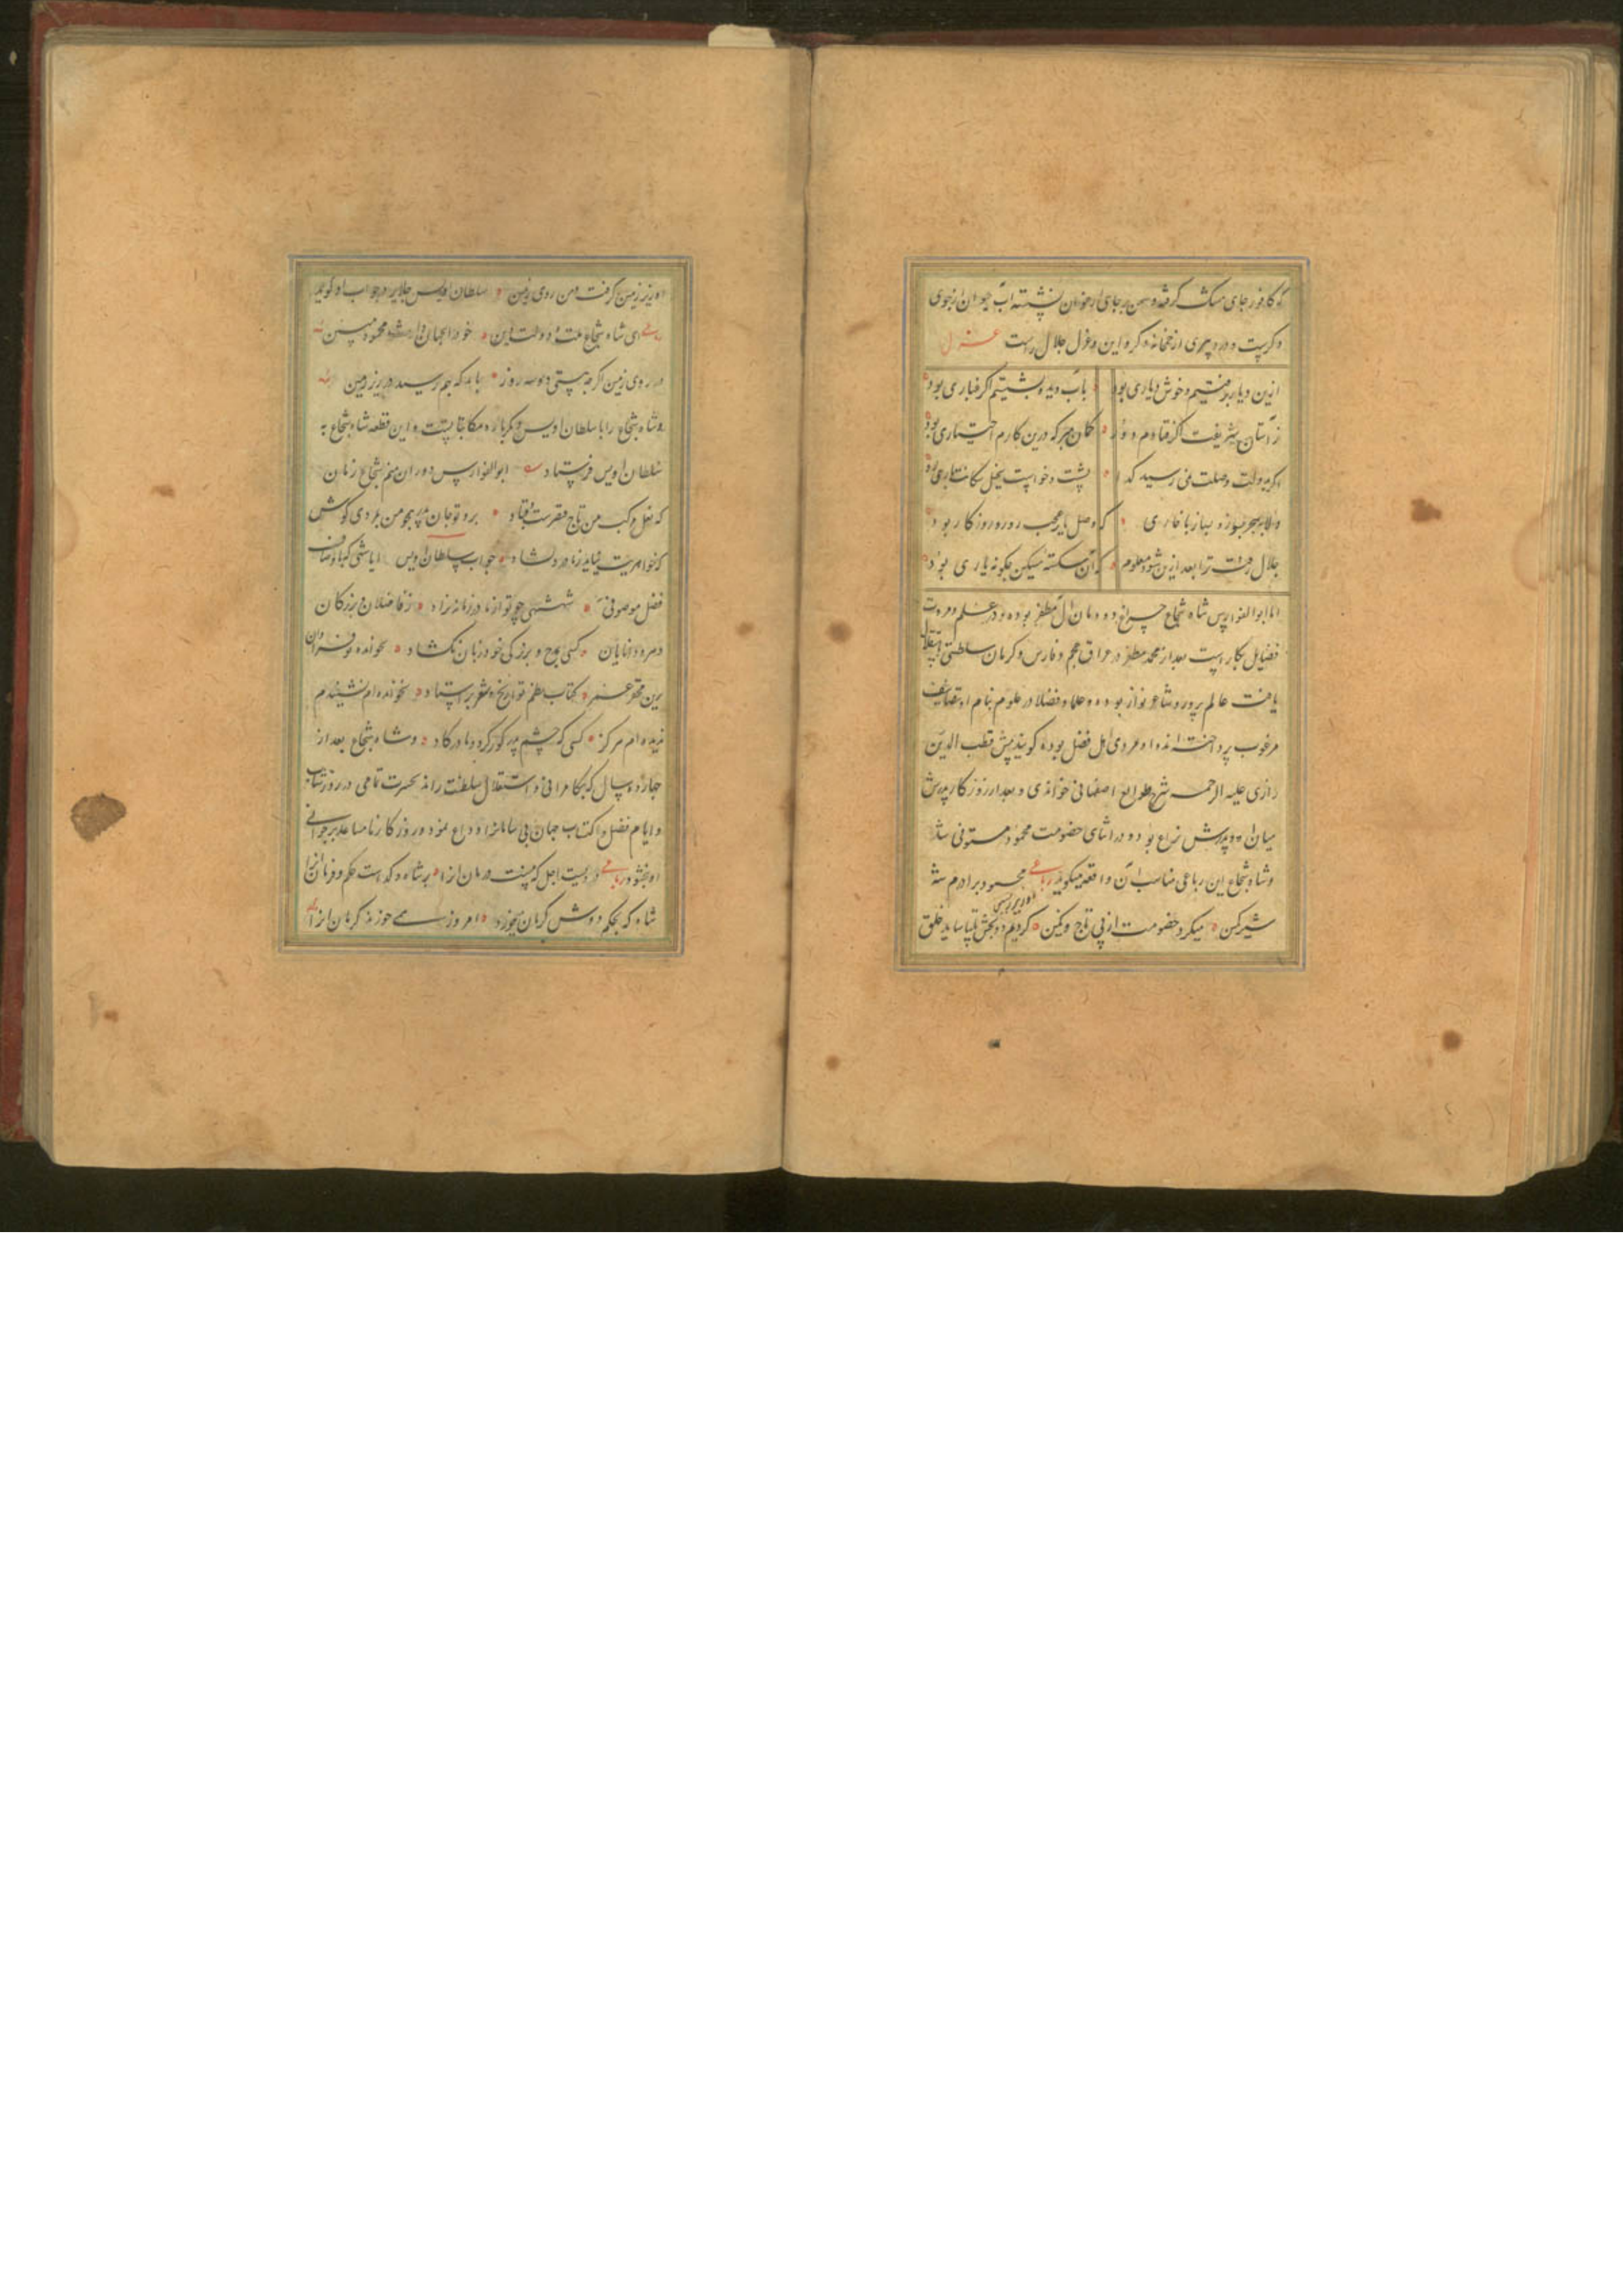 که کافور جای مشک گرفته و سمن بر جای ارغوان نشسته آب حیوان از جوی
و کریست و درد پیری از خمخانه و کره این غزل جلال راست غزل
ازین دیار برفتیم و خوش دیاری بود
بآب دیده بشستیم اگر غباری بود
ز آستان شریفت اگر فتادم دور
گمان مبر که درین کارم اختیاری بود
اگر بدولت وصلت نمی رسید گدا
دلا بهجر بسوز و بساز با خاری
که وصل یار عجب روز و روزگاری بود
جلال رفت ترا بعد ازین شود معلوم
که آن شکسته مسکین چگونه یاری بود
اما ابوالفوارس شاه شجاع چراغ دودمان آل مظفر بوده و در علم و مروت
فضایل بکار است بعد از محمد مظفر در عراق عجم و فارس و کرمان سلطنتی باستقلال
یافت عالم پرور و شاعر نواز بوده و علما و فضلا در علوم بنام او تصانیف
مرغوب پرداخته اند و او مردی اهل فضل بوده گویند پیش قطب الدین
رازی علیه الرحمه شرح طوالع اصفهانی خواندی و بعد از روزگار پدرش
میان او و برادرش نزاع بود و در اثنای خصومت محمود مستوفی شد
و شاه شجاع این رباعی مناسب آن واقعه میگوید رباعی محمود برادرم شه
شیر کمین میکرد خصومت از پی تاج و نگین کردیم دو بخش تا بیاساید خلق
او زیر زمین گرفت و من روی زمین سلطان اویس جلایر در جواب او گوید
رباعی ای شاه شجاع ملت و دولت و دین خود را بجهان وارث محمود مبین
در روی زمین اگر چه هستی دو سه روز بالله که بهم رسید در زیر زمین
و شاه شجاع را با سلطان اویس دیگر باره مکاتباتست و این قطعه شاه شجاع به
سلطان اویس فرستاد ابوالفوارس دوران منم شجاع زمان
که نعل مرکب من تاج قیصرست و قباد برو تو جان پدر همچو من بمردی کوش
جواب سلطان اویس ایا شهی که باوصاف
فضل موصوفی شهنشهی چو تو از مادر زمانه نزاد ز فاضلان و بزرگان
و مردم دانایان کسی بمدح و بزرگی خود زبان نگشاد بخوانده ام فراوان
کتاب نظم تواریخ و شعر استاد نخوانده ام نشنیدم
ندیده ام هرگز کسی که چشم پدر کور کرد و مادر گاد و شاه شجاع بعد از
چهارده سال که بکامرانی و استقلال سلطنت راند بحسرت تمامی در روز شباب
و ایام فضل و اکتساب جهان بی سامانرا وداع نمود و روزگار نامساعد بر جوانی
او نبخشود رباعی دردیست اجل که نیست درمان او را بر شاه و گداست حکم و فرمان او را
شاه که بحکم دوش کرمان میخورد امروز همی خورند کرمان او را